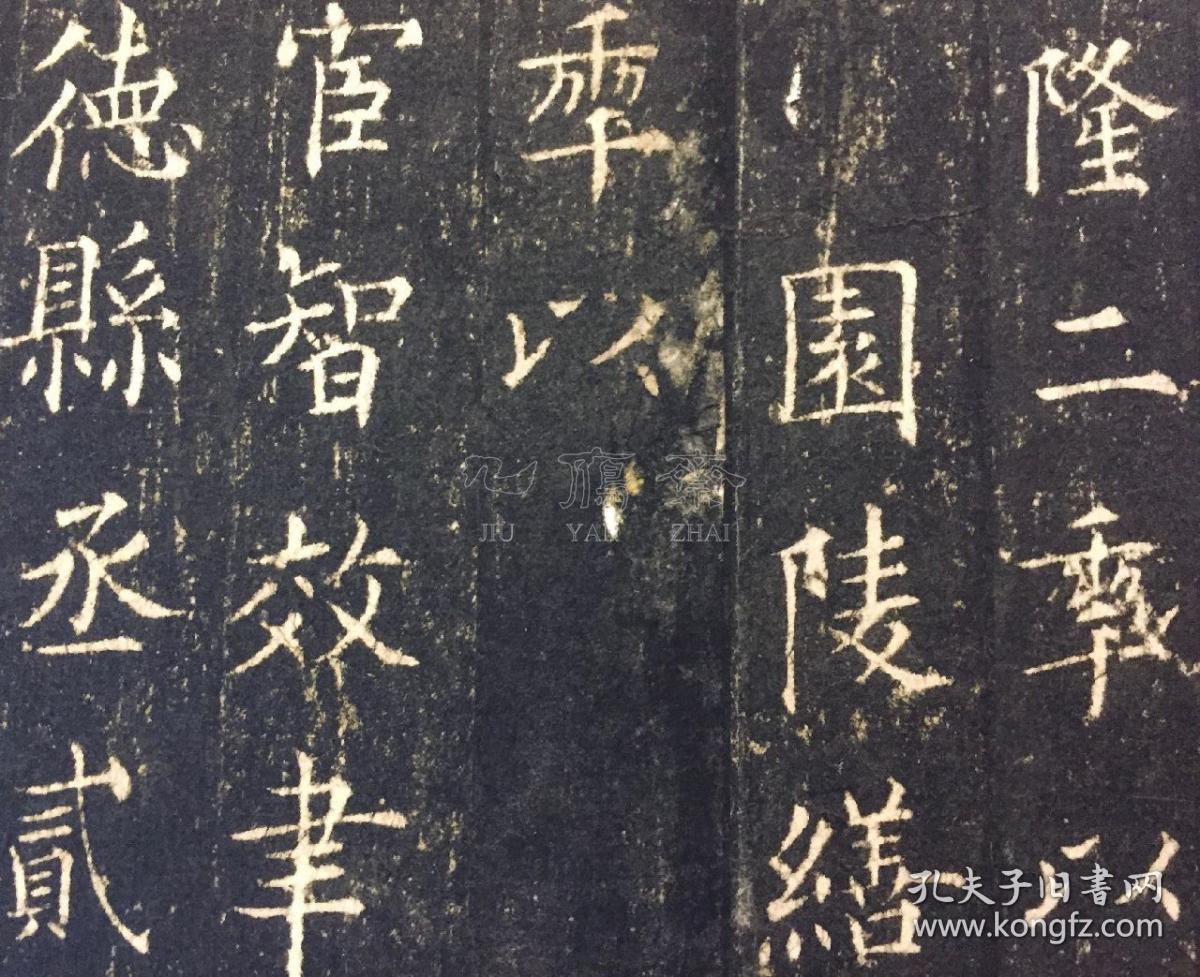 隆二以
園陵繕
以
宦智效聿
德縣丞貳
JIU YAN ZHAI
孔夫子旧書网
www.kongfz.com